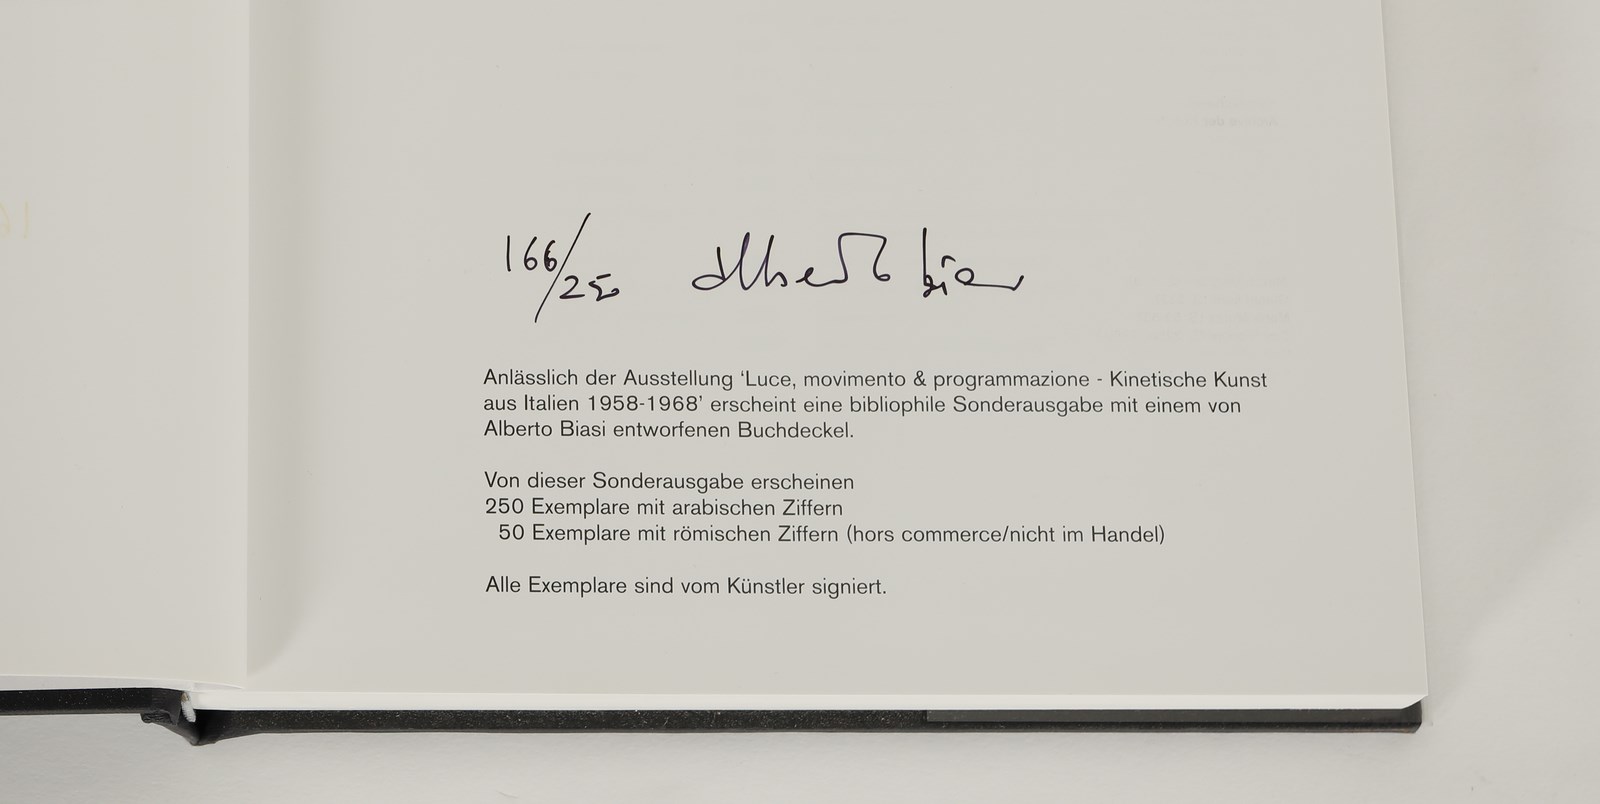 166/250 Alberto Biasi
Anlässlich der Ausstellung ‘Luce, movimento & programmazione - Kinetische Kunst
aus Italien 1958-1968’ erscheint eine bibliophile Sonderausgabe mit einem von
Alberto Biasi entworfenen Buchdeckel.
Von dieser Sonderausgabe erscheinen
250 Exemplare mit arabischen Ziffern
50 Exemplare mit römischen Ziffern (hors commerce/nicht im Handel)
Alle Exemplare sind vom Künstler signiert.